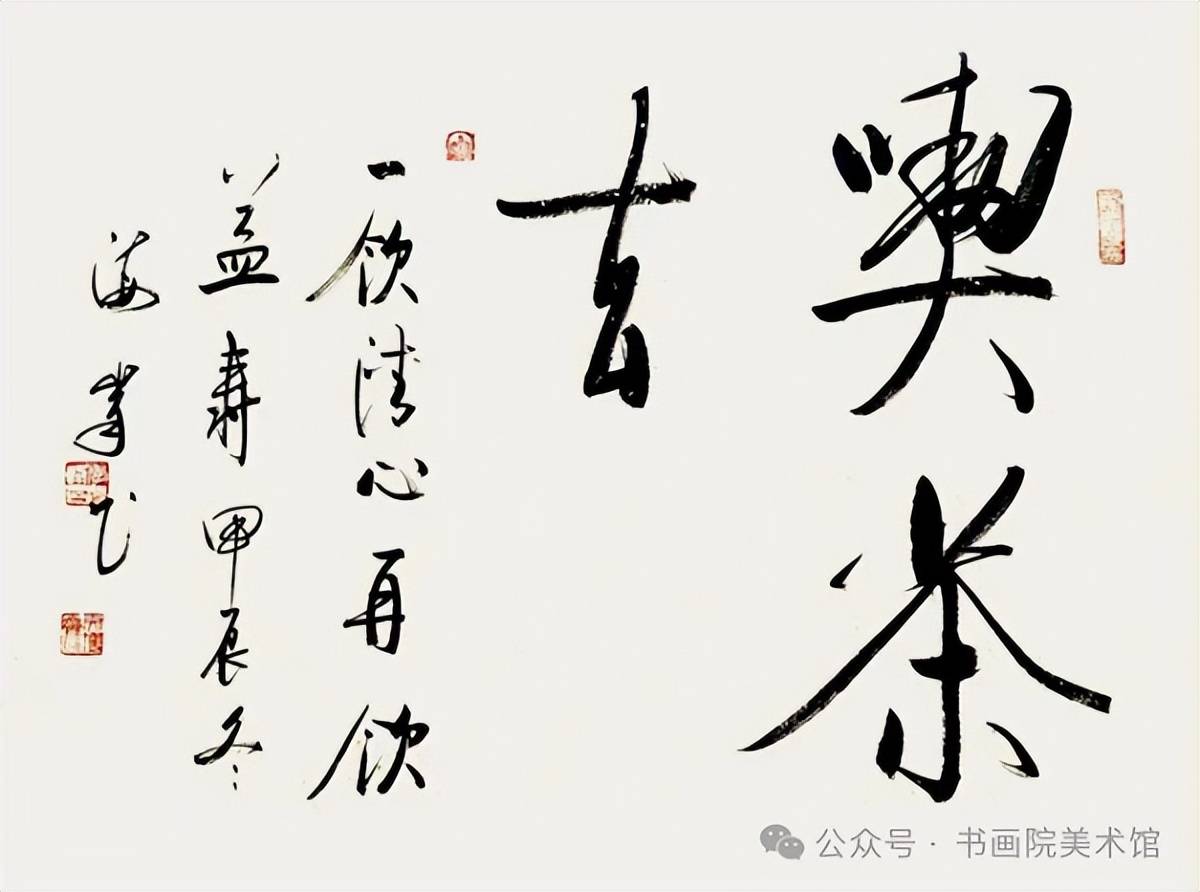 喫茶
去
一飲清心再飲
益壽甲辰冬
海峯书
公众号 · 书画院美术馆